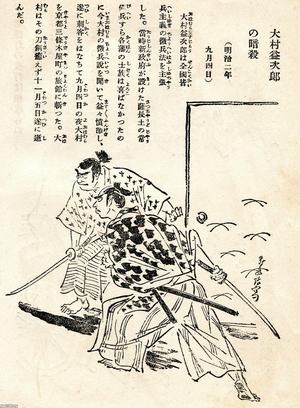 大村益次郎
の暗殺
(明治二年
九月四日)
大村益次郎は全國皆
兵主義の徴兵法を主張
した。當時新政府が設けた薩長土の常
備兵すら各藩の士族は喜ばなかつたの
に今大村の徴兵說を聞いて益々憤慨し、
遂に刺客をはなちて九月四日の夜大村
を京都三條木屋町の旅館に斬つた。大
村はその刀創癒えず十一月五日遂に逝
んだ。